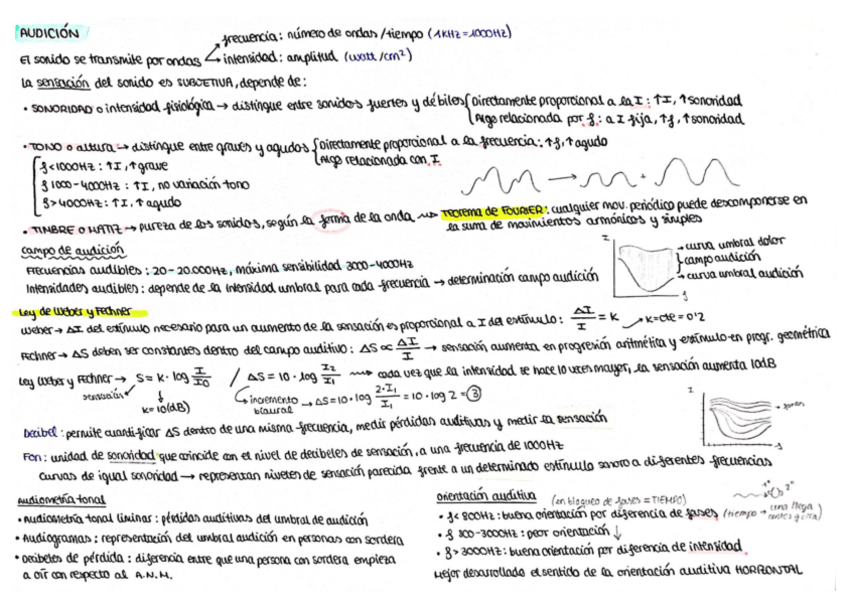 AUDICIÓN
El sonido se transmite por ondas
frecuencia: número de ondas/tiempo (1KHz=1000Hz)
intensidad: amplitud (watt/cm²)
La sensación del sonido es SUBJETIVA, depende de:
• SONORIDAD o intensidad fisiológica → distingue entre sonidos fuertes y débiles
Directamente proporcional a la I: ↑I, ↑sonoridad
Algo relacionada por f: a I fija, ↑f, ↑sonoridad
• TONO o altura → distingue entre graves y agudos
Directamente proporcional a la frecuencia: ↑f, ↑agudo
Algo relacionada con I
f<1000Hz: ↑I, ↑grave
f 1000-4000Hz: ↑I, no variación tono
f>4000Hz: ↑I, ↑agudo
• TIMBRE O MATIZ → pureza de los sonidos, según la forma de la onda → TEOREMA DE FOURIER: cualquier mov. periódico puede descomponerse en
la suma de movimientos armónicos y simples
Campo de audición
Frecuencias audibles: 20-20.000Hz, máxima sensibilidad 3000-4000Hz
Intensidades audibles: depende de la intensidad umbral para cada frecuencia → determinación campo audición
I
curva umbral dolor
campo audición
curva umbral audición
f
Ley de Weber y Fechner
Weber → ΔI del estímulo necesario para un aumento de la sensación es proporcional a I del estímulo: ΔI/I = K → K=cte=0'2
Fechner → ΔS deben ser constantes dentro del campo auditivo: ΔS ∝ ΔI/I → sensación aumenta en progresión aritmética y estímulo en progr. geométrica
Ley Weber y Fechner → S = K · log I/I0 / ΔS = 10 · log I2/I1 → cada vez que la intensidad se hace 10 veces mayor, la sensación aumenta 10dB
sensación
K=10(dB)
incremento
biaural → ΔS=10·log 2·I1/I1 = 10·log 2 = 3
Decibel: permite cuantificar ΔS dentro de una misma frecuencia, medir pérdidas auditivas y medir la sensación
I
Fon: unidad de sonoridad que coincide con el nivel de decibeles de sensación, a una frecuencia de 1000Hz
Curvas de igual sonoridad → representan niveles de sensación parecida frente a un determinado estímulo sonoro a diferentes frecuencias
Audiometría tonal
• Audiometría tonal liminar: pérdidas auditivas del umbral de audición
• Audiogramas: representación del umbral audición en personas con sordera
• Decibeles de pérdida: diferencia entre que una persona con sordera empieza
a oír con respecto al A.N.M.
Orientación auditiva (en bloqueo de fases = TIEMPO)
1º 2º
• f< 800Hz: buena orientación por diferencia de fases (tiempo → una llega antes q otra)
• f 800-3000Hz: peor orientación ↓
• f> 3000Hz: buena orientación por diferencia de intensidad
Mejor desarrollado el sentido de la orientación auditiva HORIZONTAL